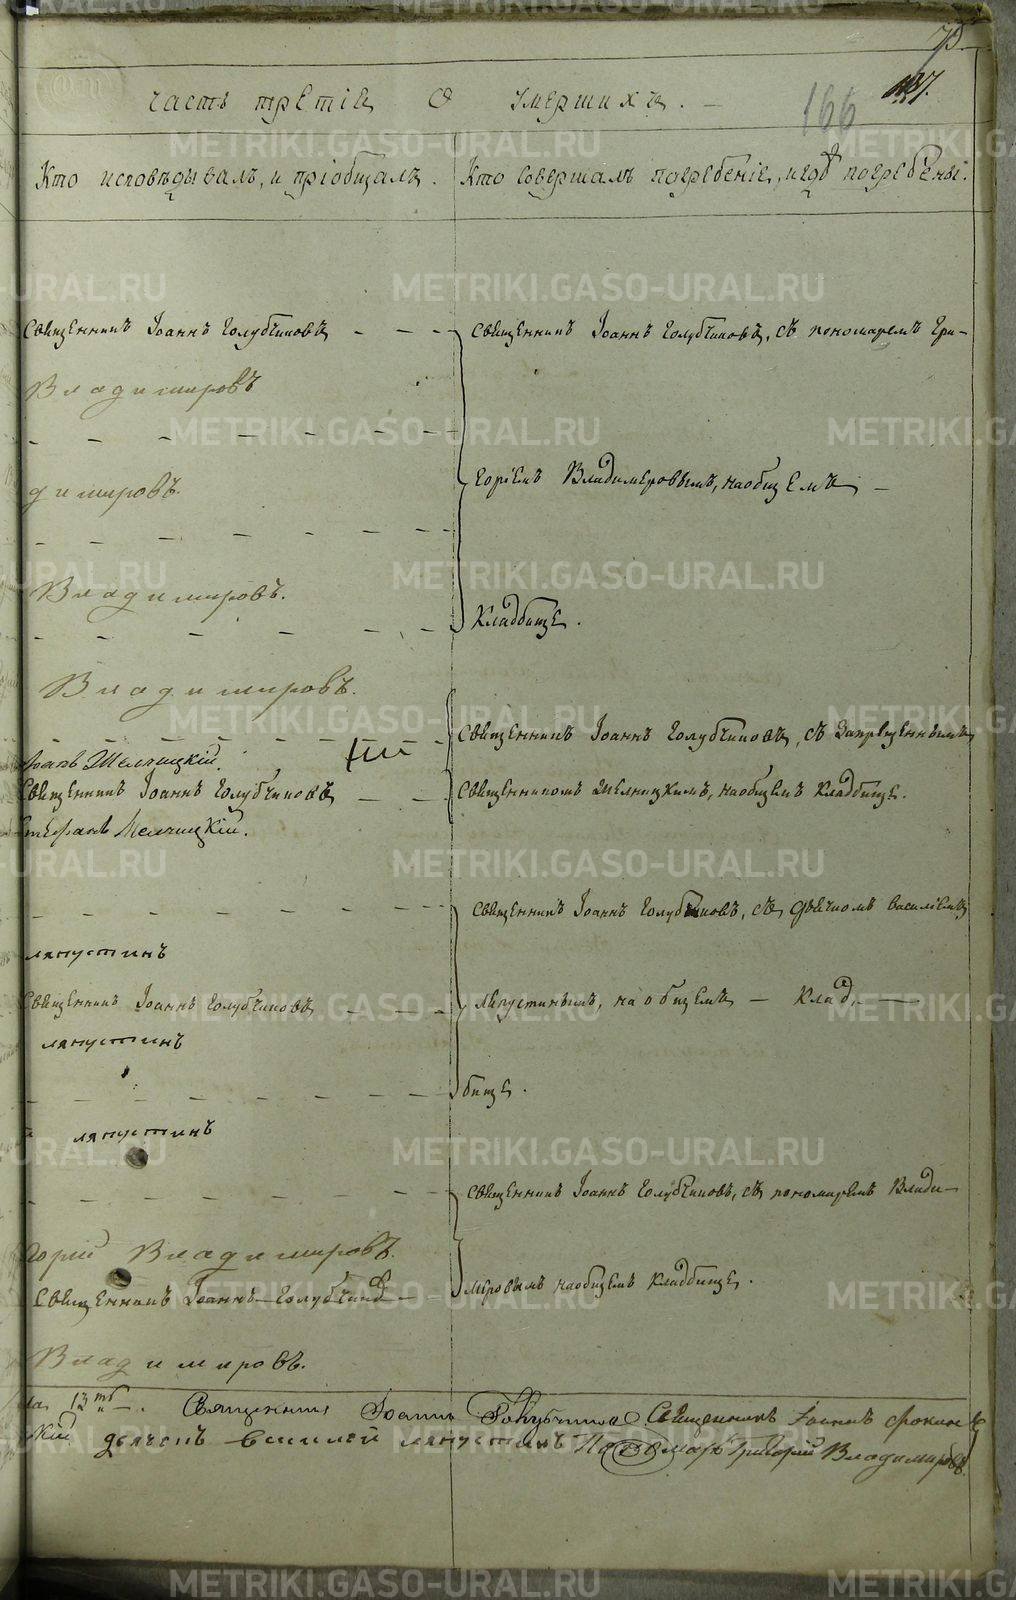 75.
166
Часть третія О умершихъ.
Кто исповѣдывалъ, и пріобщалъ.
Кто совершалъ погребеніе, и гдѣ погребены.
Священникъ Іоаннъ Голубчиковъ
Священникъ Іоаннъ Голубчиковъ, съ пономаремъ Гри-
Владимировъ
димировъ.
горіемъ Владимеровымъ, на общемъ
Владимировъ.
Кладбище.
Владимировъ.
Священникъ Іоаннъ Голубчиковъ, съ запрещеннымъ
фанъ Мелницкій.
Священникъ Іоаннъ Голубчиковъ
Священникомъ Мелницкимъ, на общемъ Кладбище.
Стефанъ Мелницкій.
Священникъ Іоаннъ Голубчиковъ, съ дьячкомъ Василіемъ
ляпустинъ
Священникъ Іоаннъ Голубчиковъ
Ляпустинымъ, на общемъ Клад
ляпустинъ
бище.
ляпустинъ
Священникъ Іоаннъ Голубчиковъ, съ пономаремъ Влади-
горий Владимировъ.
Священникъ Іоаннъ Голубчиковъ
мировымъ на общемъ Кладбище.
Владимировъ.
13 Священникъ Іоаннъ Голубчиковъ Священникъ Іоаннъ
кій дьячекъ Василей ляпустинъ Пономарь Григорий Владимировъ.
METRIKI.GASO-URAL.RU